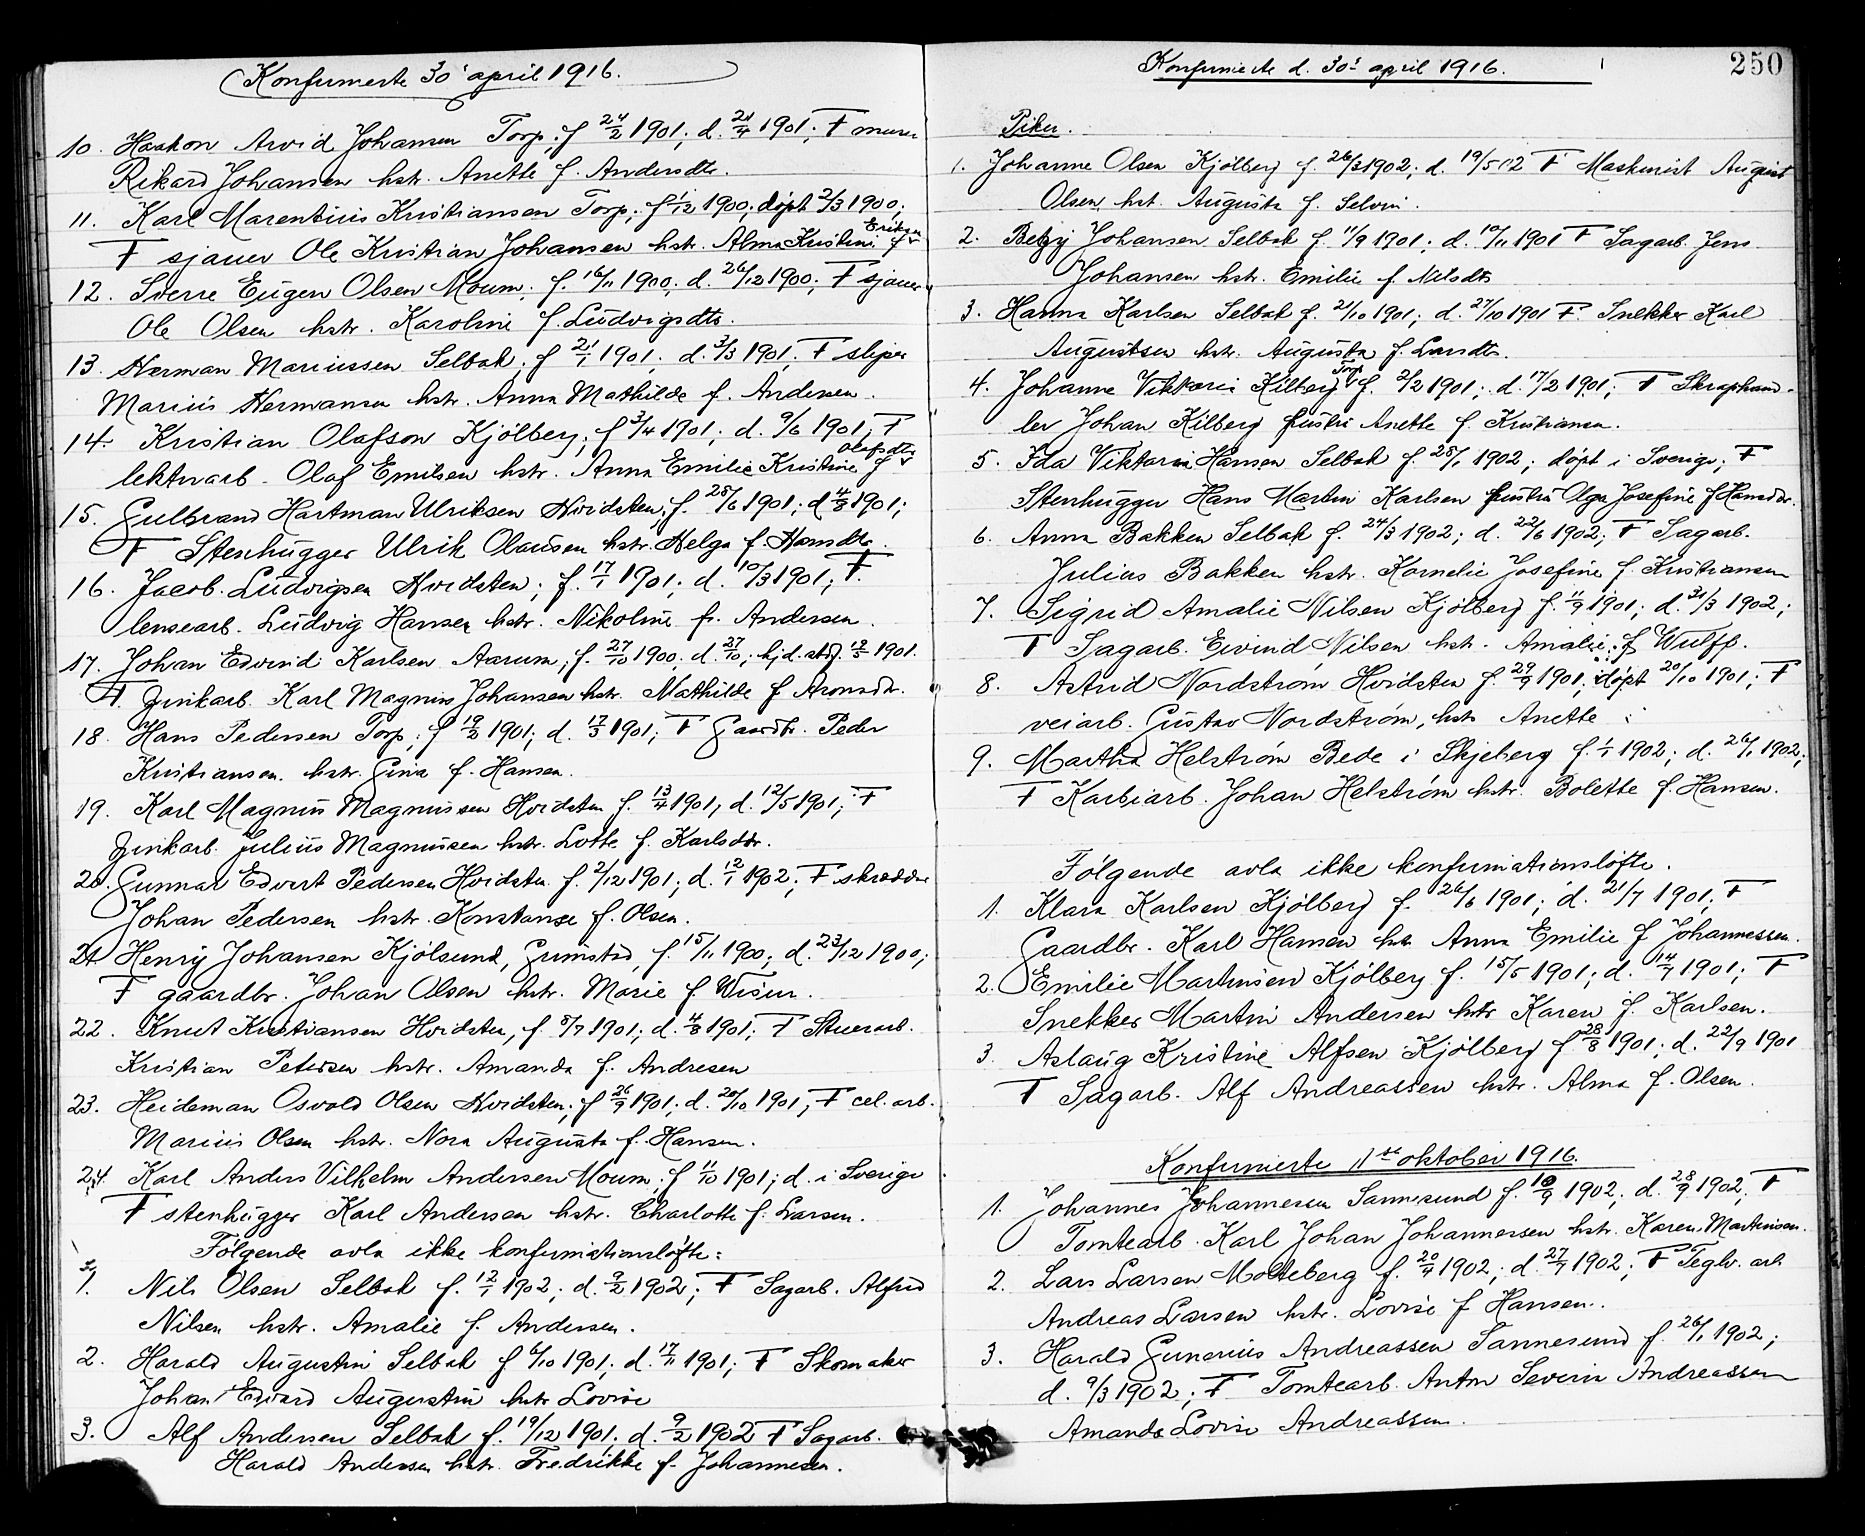 Konfirmerte 30' april 1916.
10. Haakon Arvid Johansen Torp; f 24/2 1901; d. 21/4 1901; F murer
Rikard Johansen hstr. Anette f. Andersdtr.
11. Karl Marentius Kristiansen Torp; f 1/12 1900; døpt 2/3 1900;
F sjauer Ole Kristian Johansen hstr. Alma Kristine f Eriksen
12. Sverre Eugen Olsen Moum; f. 16/11 1900; d. 26/12 1900; F sjauer
Ole Olsen hstr. Karoline f. Ludvigsdtr.
13. Herman Mariussen Selbak; f 21/1 1901; d. 3/3 1901; F sliper
Marius Hermansen hstr. Anna Mathilde f. Andersen.
14. Kristian Olafson Kjölberg; f 3/4 1901; d. 9/6 1901; F
lektnarb. Olaf Emilsen hstr. Anna Emilie Kristine f Olafsdtr
15. Gulbrand Hartman Ulriksen Hvidsten; f. 28/6 1901; d 4/8 1901;
F Stenhugger Ulrik Olausen hstr. Helga f. Hansdtr.
16. Jacob Ludvigsen Hvidsten; f. 17/1 1901; d. 10/3 1901; F.
lensearb. Ludvig Hansen hstr. Nikoline f. Andersen.
17. Johan Edvind Karlsen Aarum; f. 27/10 1900; d. 27/10; hjd. stdf. 12/5 1901.
F. Zinkarb. Karl Magnus Johansen hstr. Mathilde f Aronsdtr.
18. Hans Pedersen Torp; f 19/2 1901; d. 17/3 1901; F Gaardbr. Peder
Kristiansen hstr. Gina f. Hansen.
19. Karl Magnus Magnussen Hvidsten f. 13/4 1901, d. 12/5 1901; F
Zinkarb. Julius Magnussen hstr. Lotte f. Karlsdtr.
20. Gunnar Edvart Pedersen Hvidsten f. 2/12 1901; d. 12/1 1902; F skrædder
Johan Pedersen hstr. Konstanse f. Olsen.
21 Henry Johansen Kjölsund, Grimstad, f. 15/11 1900; d. 23/12 1900;
F gaardbr. Johan Olsen hstr. Marie f.
22. Knut Kristiansen Hvidsten, f. 5/7 1901; d. 4/8 1901; F Stuerarb.
Kristian Petersen hstr. Amanda f. Andresen
23. Heideman Osvald Olsen Hvidsten; f 26/9 1901; d. 20/10 1901; F cel. arb.
Marius Olsen hstr. Nora Augusta f. Hansen.
24. Karl Anders Vilhelm Andersen Moum; f 11/10 1901; d. i Sverige
F stenhugger Karl Andersen hstr. Charlotte f. Larsen.
Følgende avla ikke konfirmationsløfte:
1. Nils Olsen Selbak f. 12/1 1902; d. 9/2 1902; F Sagarb. Alfred
Nilsen hstr. Amalie f. Andersen.
2. Harald Augustin Selbak f 6/10 1901; d. 17/11 1901; F Skomaker
Johan Edvard Augustin hstr Lovise
3. Alf Andersen Selbak f. 19/12 1901; d. 9/2 1902 F Sagarb.
Harald Andersen hstr. Fredrikke f. Johannesen.
Konfirmerte d. 30' april 1916.
250
Piker.
1. Johanne Olsen Kjölberg f. 26/3 1902; d. 19/5 12 F Maskinist August
Olsen hst. Augusta f.
2. Betzy Johansen Selbak f. 11/9 1901; d. 10/11 1901 F Sagarb. Jens
Johansen hstr. Emilie f. Nilsdtr
3. Hanna Karlsen Selbak f. 21/10 1901; d. 27/10 1901 F. Snekker Karl
Augustsen hstr. Augusta f. Larsdtr.
4. Johanne Viktoria Kilberg Torp f. 2/2 1901; d. 17/2 1901; F Skraphand-
ler Johan Kilberg hustru Anette f. Kristiansen.
5. Ida Viktoria Hansen Selbak f. 25/1 1902; døpt i Sverige; F
Stenhugger Hans Martin Karlsen hustru Olga Josefine f Hansdtr.
6. Anna Bakken Selbak f. 24/3 1902; d. 22/6 1902; F Sagarb.
Julius Bakken hstr. Kornelie Josefine f. Kristiansen
7. Sigrid Amalie Nilsen Kjölberg f. 11/9 1901; d. 31/3 1902;
F Sagarb. Eivind Nilsen hstr. Amalie f Wulff.
8. Astrid Nordstrøm Hvidsten f. 29/9 1901; døpt 20/10 1901; F
veiarb. Gustav Nordstrøm, hstr Anette
9. Martha Helstrøm Bede i Skjeberg f. 1/1 1902; d. 26/1 1902;
F Karbiarb. Johan Helstrøm hstr. Bolette f. Hansen.
Følgende avla ikke konfirmationsløfte.
1. Klara Karlsen Kjölberg f. 26/6 1901; d. 21/7 1901; F
Gaardbr. Karl Hansen hstr. Anna Emilie f Johannessen.
2. Emilie Martinsen Kjölberg f. 15/5 1901; d. 14/7 1901; F
Snekker Martin Andersen hstr Karen f. Karlsen.
3. Aslaug Kristine Alfsen Kjölberg f 28/8 1901; d. 22/9 1901
F Sagarb. Alf Andreassen hstr. Alma f. Olsen.
Konfirmerte 1ste oktober 1916.
1. Johannes Johannesen Sannesund f. 10/9 1902; d. 28/9 1902; F
Tomtearb. Karl Johan Johannessen hstr. Karen Martinsen.
2. Lars Larsen Molteberg f. 20/4 1902; d. 27/7 1902; F Teglv. arb.
Andreas Larsen hstr. Lovise f Hansen.
3. Harald Gunerius Andreassen Sannesund f. 26/1 1902;
d. 9/3 1902; F Tomtearb. Anton Severin Andreassen
Amanda Lovise Andreassen.